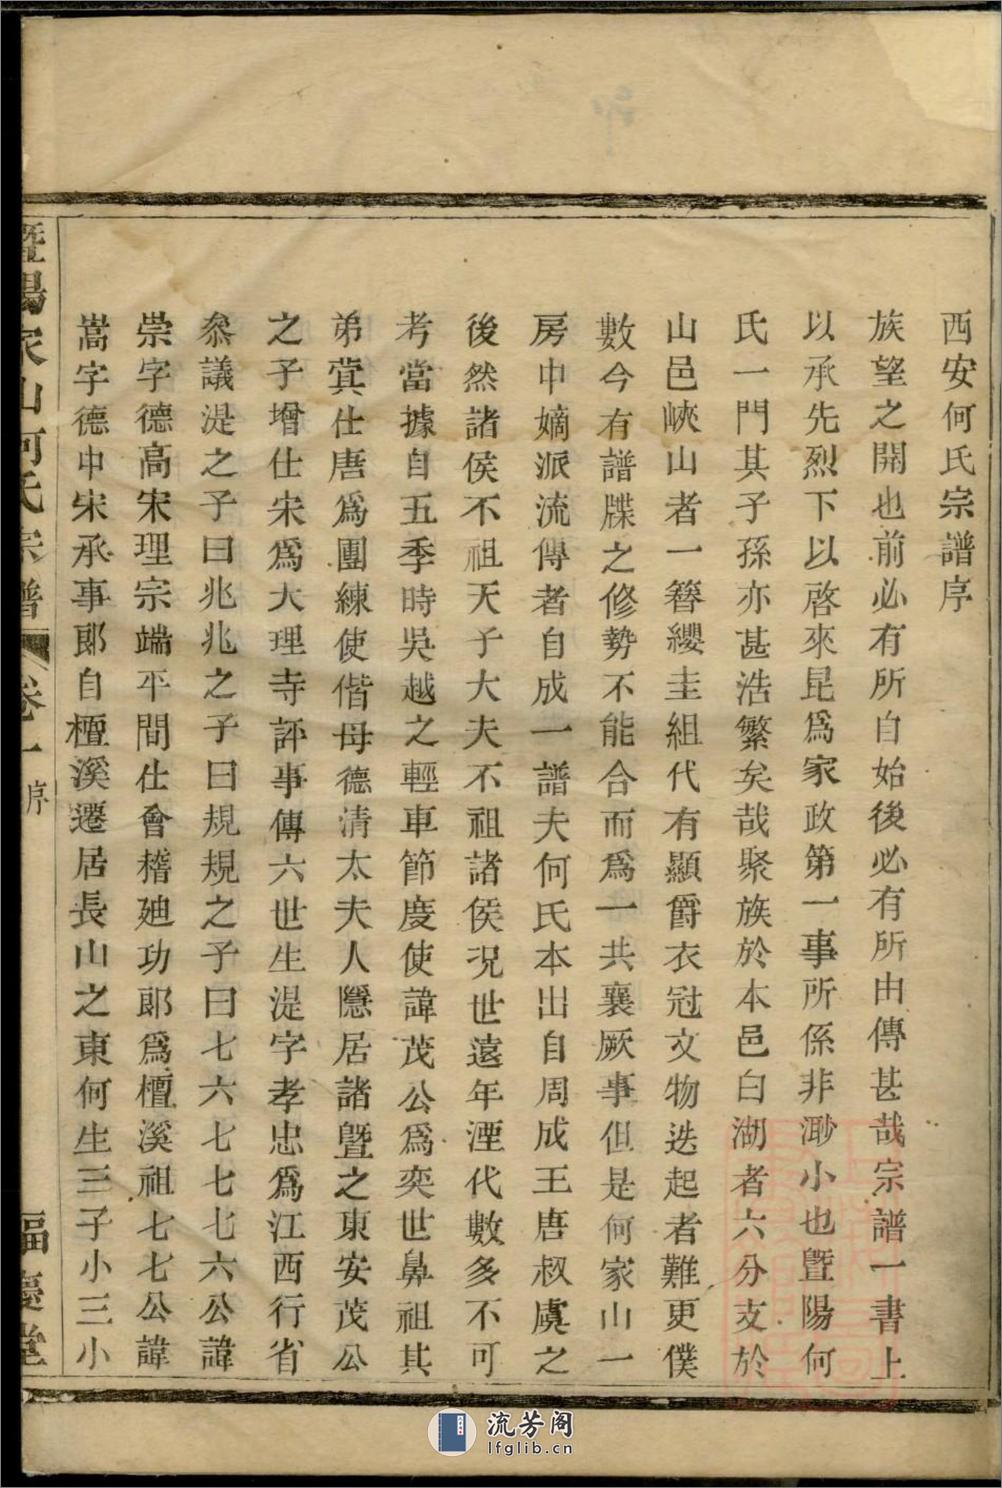 西安何氏宗譜序
族望之開也前必有所自始後必有所由傳甚哉宗譜一書上
以承先烈下以啓來昆爲家政第一事所係非渺小也曁陽何
氏一門其子孫亦甚浩繁矣哉聚族於本邑白湖者六分支於
山邑峽山者一簪纓圭組代有顯爵衣冠文物迭起者難更僕
數今有譜牒之修勢不能合而爲一共襄厥事但是何家山一
房中嫡派流傳者自成一譜夫何氏本出自周成王唐叔虞之
後然諸侯不祖天子大夫不祖諸侯况世遠年湮代數多不可
考當據自五季時吳越之輕車節度使諱茂公爲奕世鼻祖其
弟蓂仕唐爲團練使偕母德清太夫人隱居諸曁之東安茂公
之子增仕宋爲大理寺評事傳六世生湜字孝忠爲江西行省
叅議湜之子曰兆兆之子曰規規之子曰七六七七七六公諱
崇字德高宋理宗端平間仕會稽廸功郎爲檀溪祖七七公諱
嵩字德中宋承事郎自檀溪遷居長山之東何生三子小三小
曁陽家山何氏宗譜 卷一 序 福慶堂
流芳阁
lfglib.cn